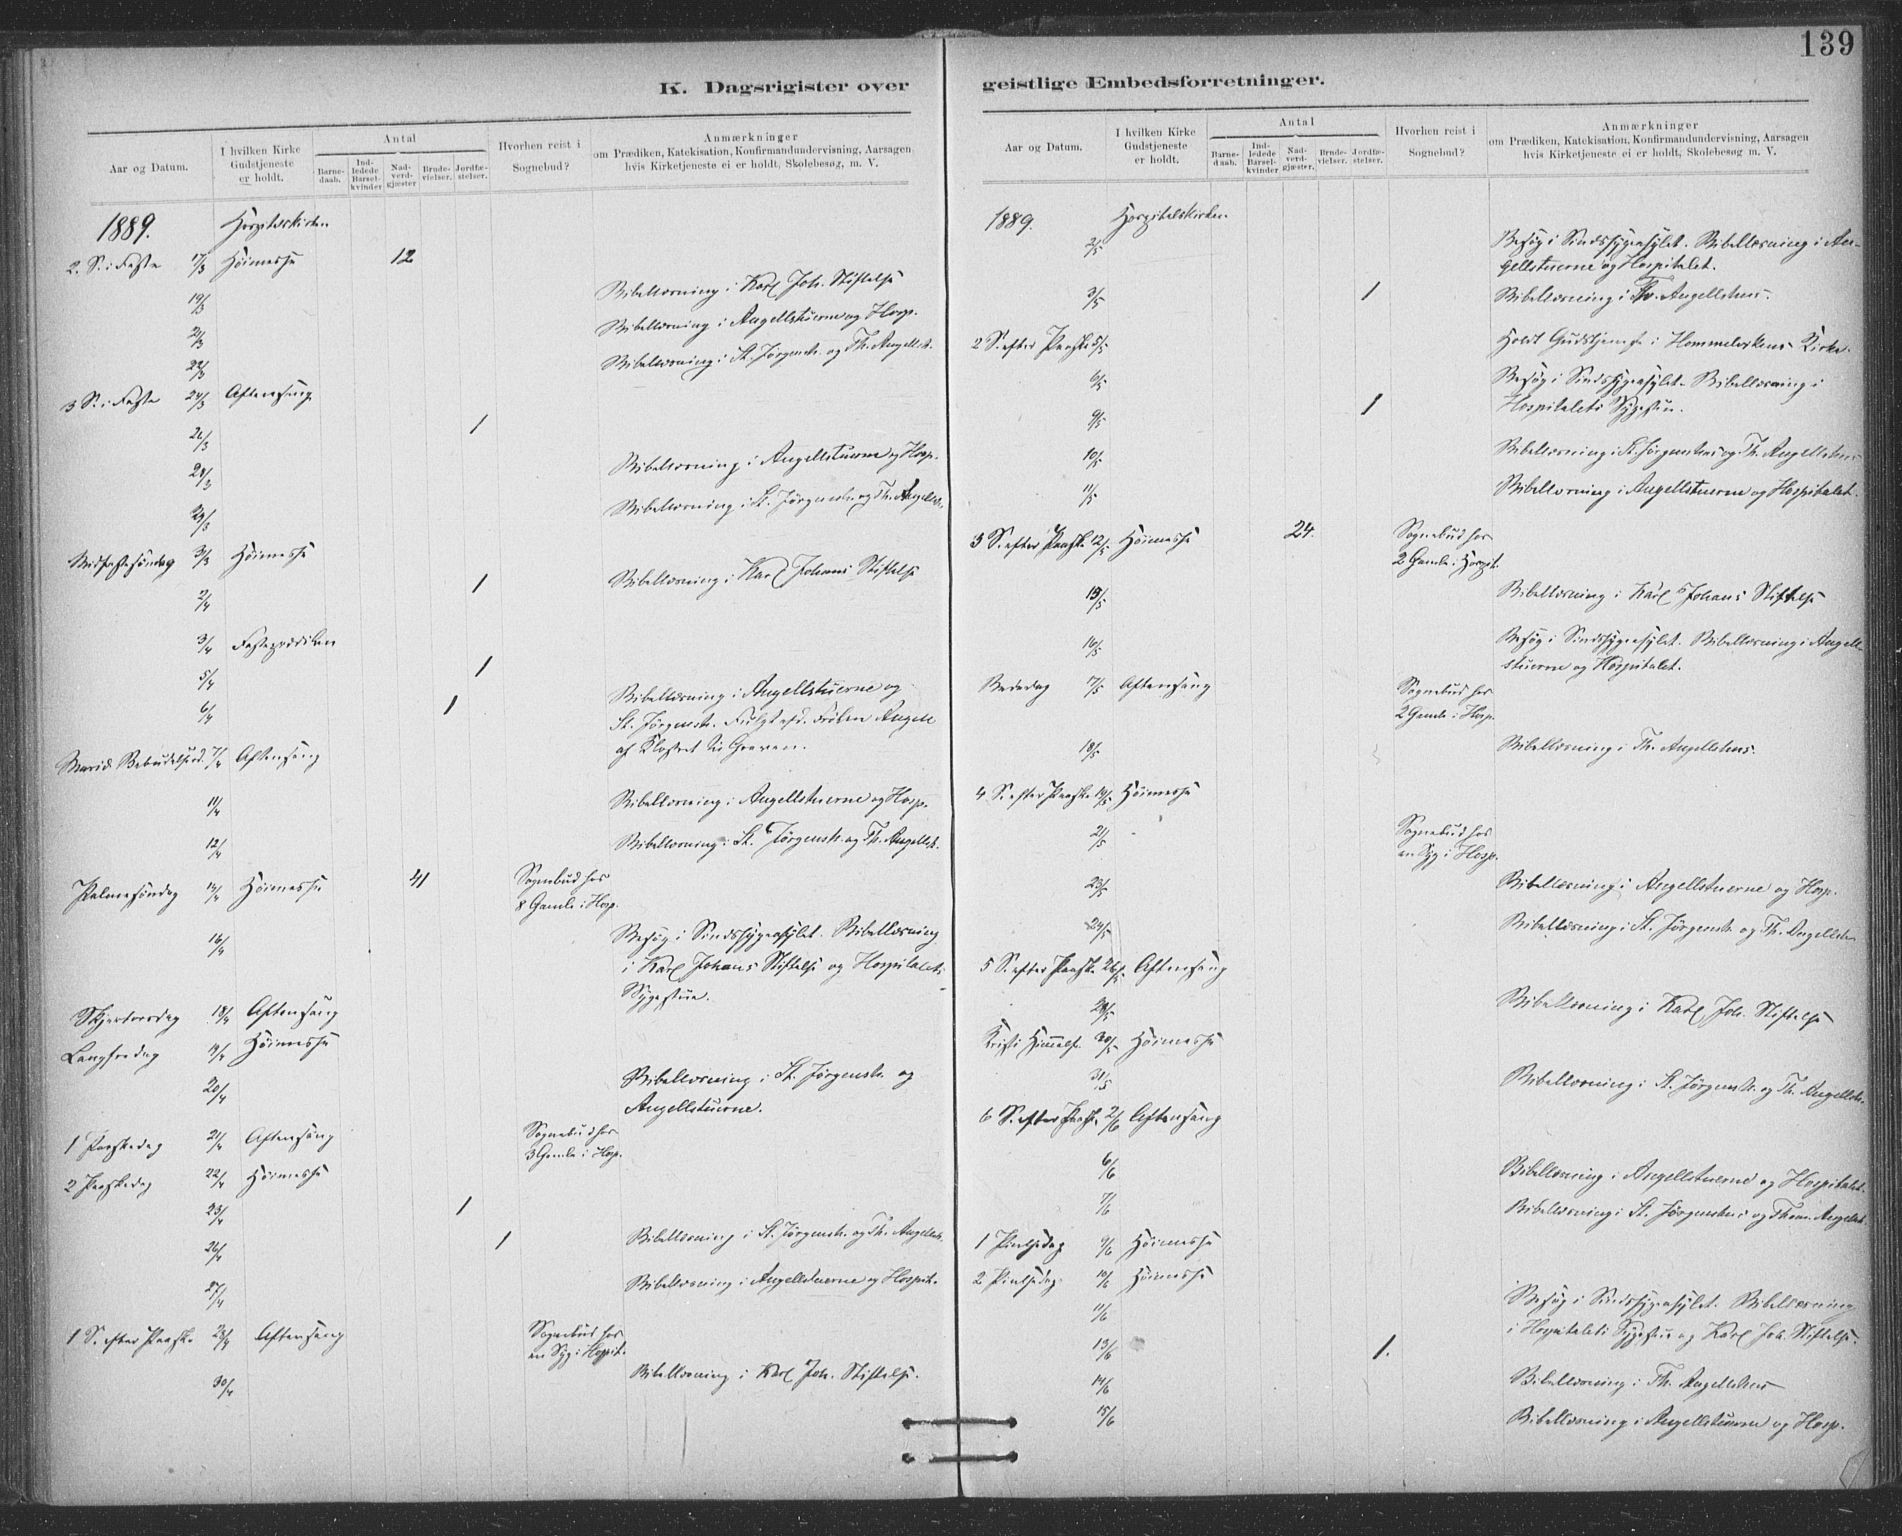 139
K. Dagsrigister over
Aar og Datum.
I hvilken Kirke
Gudstjeneste
er holdt.
Antal
Barne-
daab.
Ind-
ledede
Barsel-
kvinder
Nad-
verd-
gjæster
Brude-
vielser.
Jordfæ-
stelser.
Hvorhen reist i
Sognebud?
Anmærkninger
om Prædiken, Katekisation, Konfirmandundervisning, Aarsagen
hvis Kirketjeneste ei er holdt, Skolebesøg, m. V.
1889. Hospitalskirken
2. S. i Faste 17/3 Høimesse 12
19/3 Bibellæsning i Karl Joh. Stiftelse
21/3 Bibellæsning i Angellstuerne og Hosp.
22/3 Bibellæsning i St. Jørgensh. og Th. Angellsh.
3 S. i Faste 24/3 Aftensang
26/3 1
28/3 Bibellæsning i Angellstuerne og Hosp.
29/3 Bibellæsning i St. Jørgensh. og Th. Angellsh.
Midfastesøndag 31/3 Høimesse
2/4 1 Bibellæsning i Karl Johans Stiftelse
3/4 Fasteprædiken
5/4 1
6/4 1 Bibellæsning i Angellstuerne og
St. Jørgensh. Angell
af Klostret til Graven.
Mariæ Bebudelsesd. 7/4 Aftensang
11/4 Bibellæsning i Angellstuerne og Hosp.
12/4 Bibellæsning i St. Jørgensh. og Th. Angellsh.
Palmesøndag 14/4 Høimesse 41 Sognebud hos
8 Gamle i Hosp.
16/4 Besøg i Sindssygeasylet. Bibellæsning
i Karl Johans Stiftelse og Hospitalets
Sygestue.
Skjertorsdag 18/4 Aftensang
Langfredag 19/4 Høimesse
20/4 Bibellæsning i St. Jørgensh. og
Angellstuerne.
1 Paaskedag 21/4 Aftensang Sognebud hos
3 Gamle i Hosp.
2 Paaskedag 22/4 Høimesse
23/4 1
26/4 1 Bibellæsning i St. Jørgensh. og Th. Angellsh.
27/4 Bibellæsning i Angellstuerne og Hospit.
1 S. efter Paaske 28/4 Aftensang Sognebud hos
en Syg i Hospit.
30/4 Bibellæsning i Karl Joh. Stiftelse.
geistlige Embedsforretninger.
Aar og Datum.
I hvilken Kirke
Gudstjeneste
er holdt.
Antal
Barne-
daab.
Ind-
ledede
Barsel-
kvinder
Nad-
verd-
gjæster.
Brude-
vielser.
Jordfæ-
stelser.
Hvorhen reist i
Sognebud?
Anmærkninger
om Prædiken, Katekisation, Konfirmandundervisning, Aarsagen
hvis Kirketjeneste ei er holdt, Skolebesøg, m. V.
1889. Hospitalskirken.
2/5 Besøg i Sindssygeasylet. Bibellæsning i An-
gellstuerne og Hospitalet.
3/5 1 Bibellæsning i Th. Angellshus.
2 S. efter Paaske 5/5 Holdt Gudstjeneste i Hommelvikens Kirke.
6/5 Besøg i Sindssygeasylet. Bibellæsning i
Hospitalets Sygestue.
9/5 1
10/5 Bibellæsning i St. Jørgenshus og Th. Angellshus
11/5 Bibellæsning i Angellstuerne og Hospitalet.
3 S. efter Paaske 12/5 Høimesse 24. Sognebud hos
2 Gamle i Hospit.
15/5 Bibellæsning i Karl Johans Stiftelse
16/5 Besøg i Sindssygeasylet. Bibellæsning i Angell-
stuerne og Hospitalet.
Bededag 17/5 Aftensang Sognebud hos
2 Gamle i Hosp.
18/5 Bibellæsning i Th. Angellshus.
4 S. efter Paaske 19/5 Høimesse
21/5 Sognebud hos
en Syg i Hosp.
23/5 Bibellæsning i Angellstuerne og Hosp.
24/5 Bibellæsning i St. Jørgensh. og Th. Angellsh.
5 S. efter Paaske 26/5 Aftensang
28/5 Bibellæsning i Karl Joh. Stiftelse
Kristi Himmelf. 30/5 Høimesse
31/5 Bibellæsning i St. Jørgensh. og Th. Angellsh.
6 S. efter Paaske 2/6 Aftensang
6/6 Bibellæsning i Angellstuerne og Hospitalet.
7/6 Bibellæsning i St. Jørgenshus og Thom. Angellsh.
1 Pintsedag 9/6 Høimesse
2 Pintsedag 10/6 Høimesse
11/6 Besøg i Sindssygeasylet. Bibellæsning
i Hospitalets Sygestue og Karl Joh. Stiftelse.
13/6 1.
14/6 Bibellæsning i Th. Angellshus
15/6 Bibellæsning i Angellstuerne og Hosp.